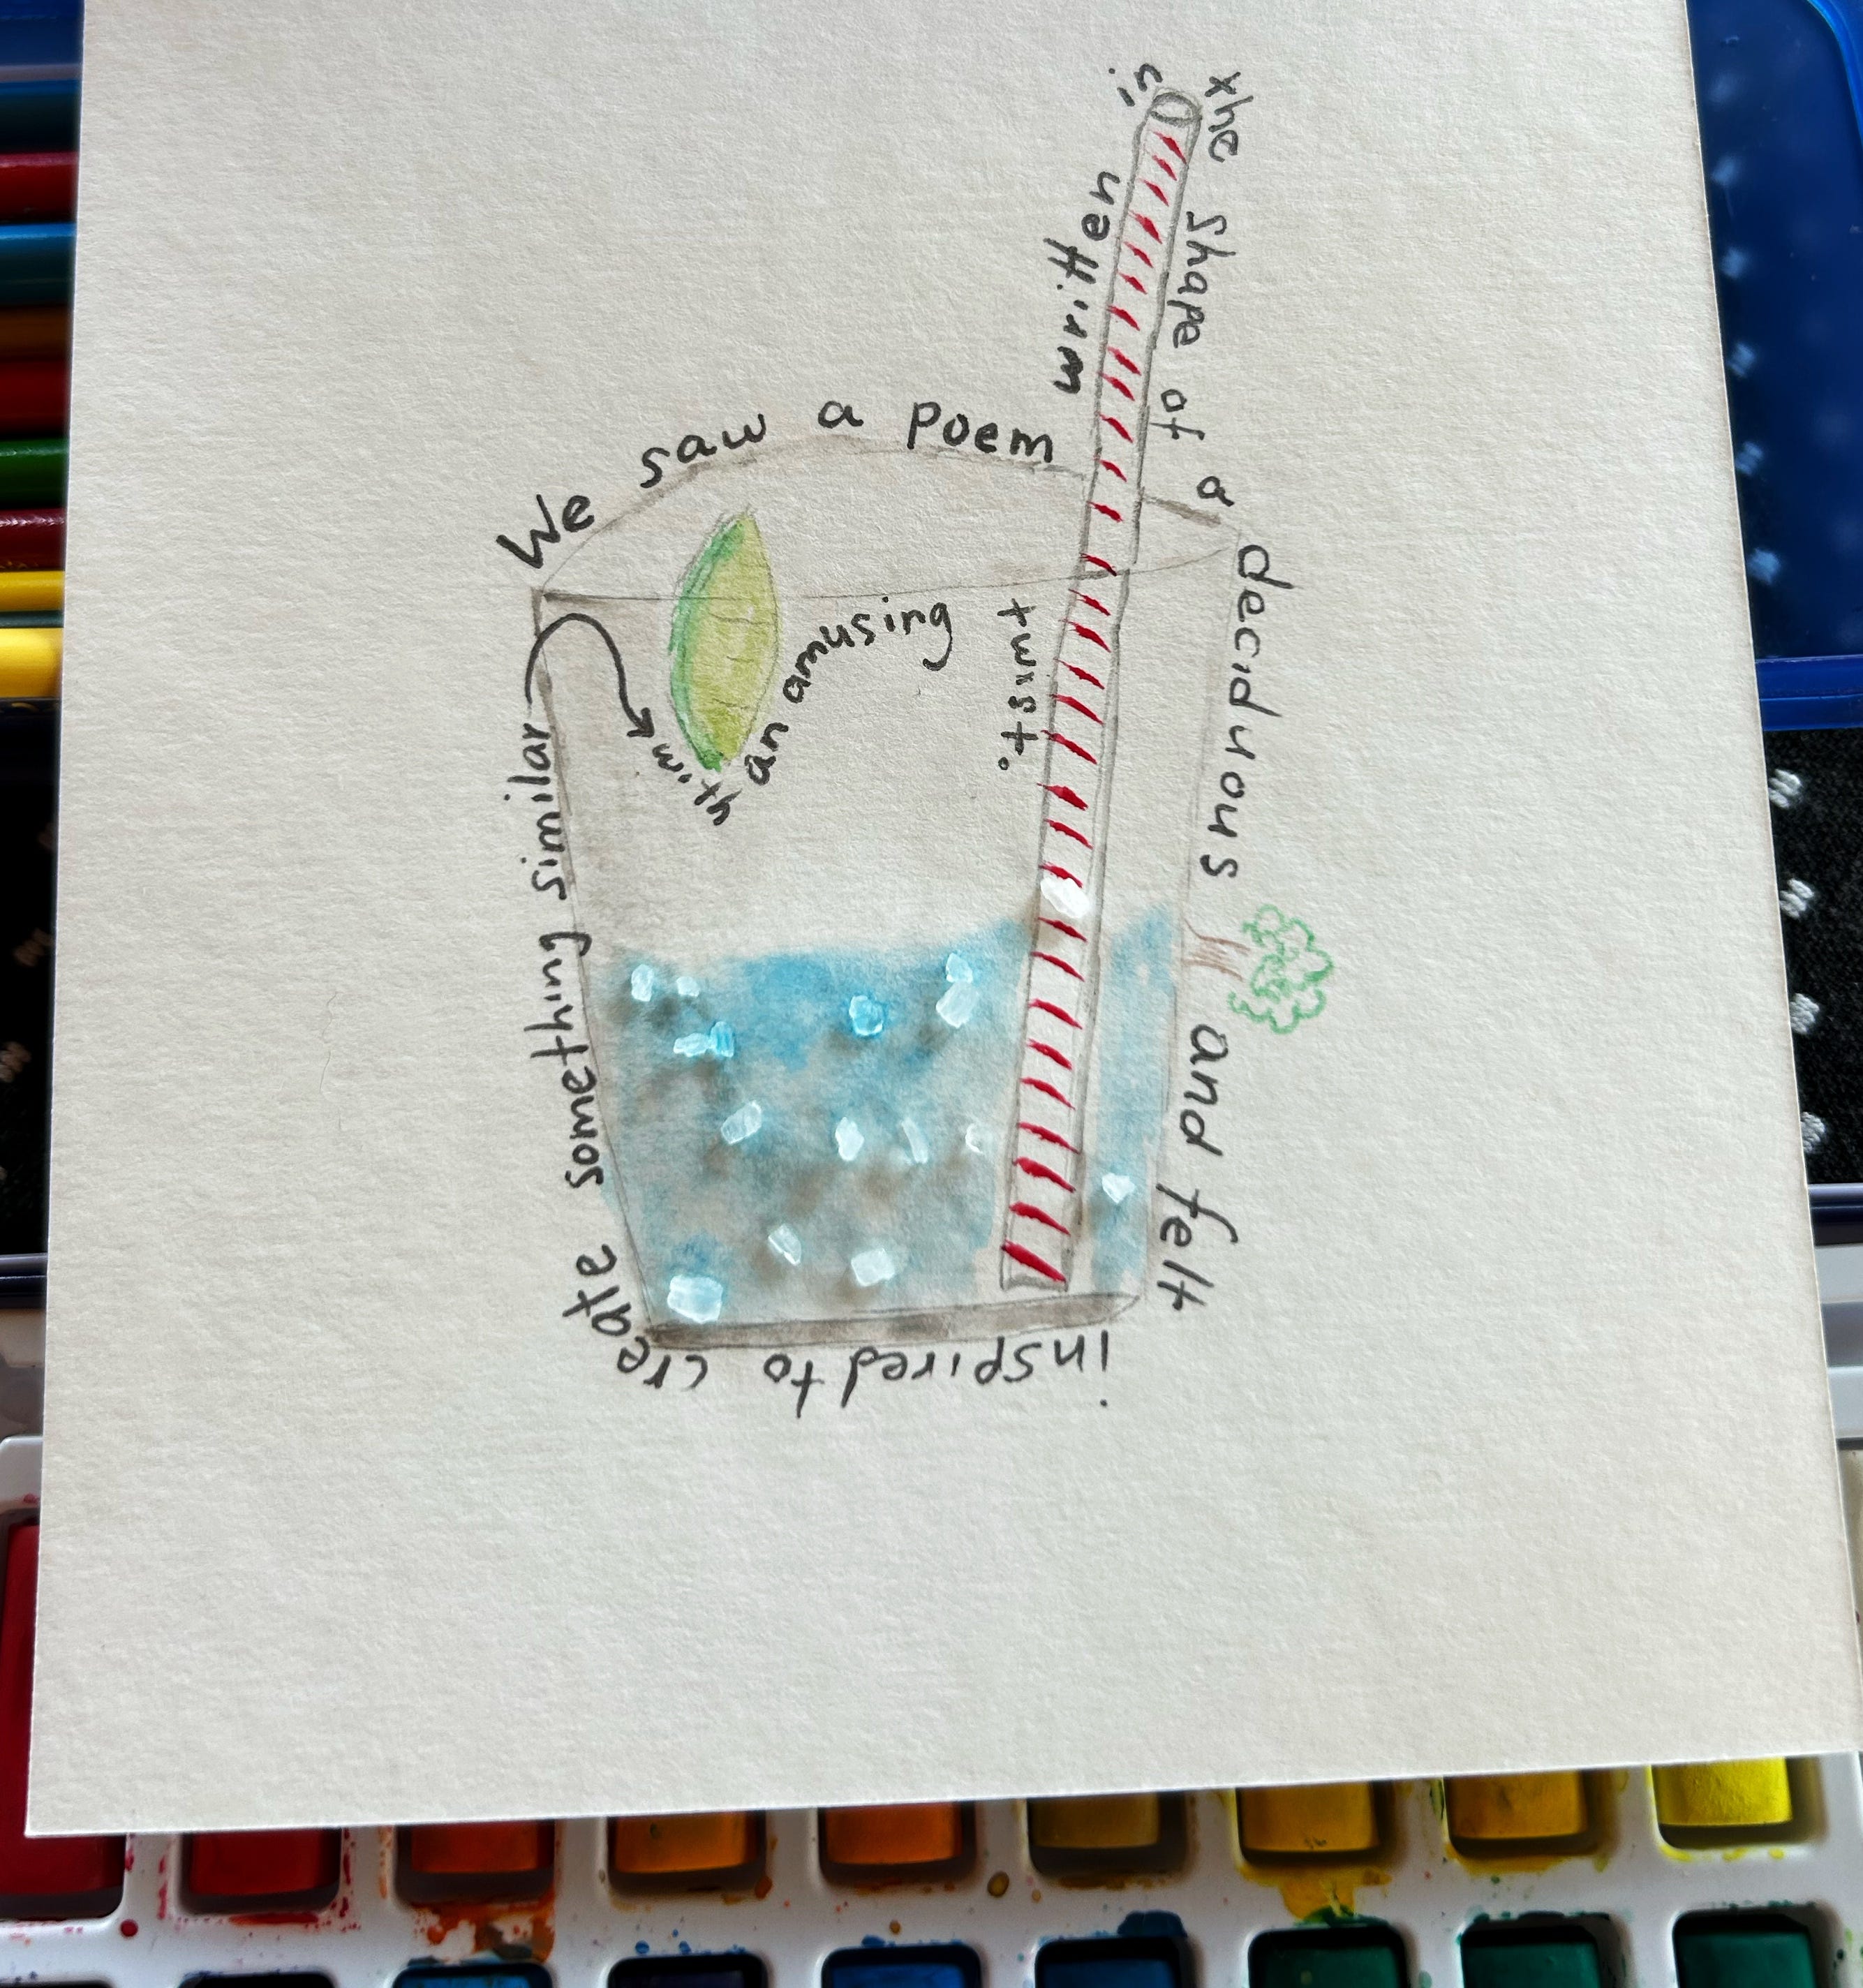 We saw a poem
written
in
the shape of a
deciduous
and felt
inspired to create
something similar
with
an amusing
twist.